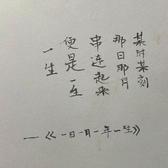 某时某刻
那日那月
串连起来
便是一生
一生
——《一日一月一年一生》